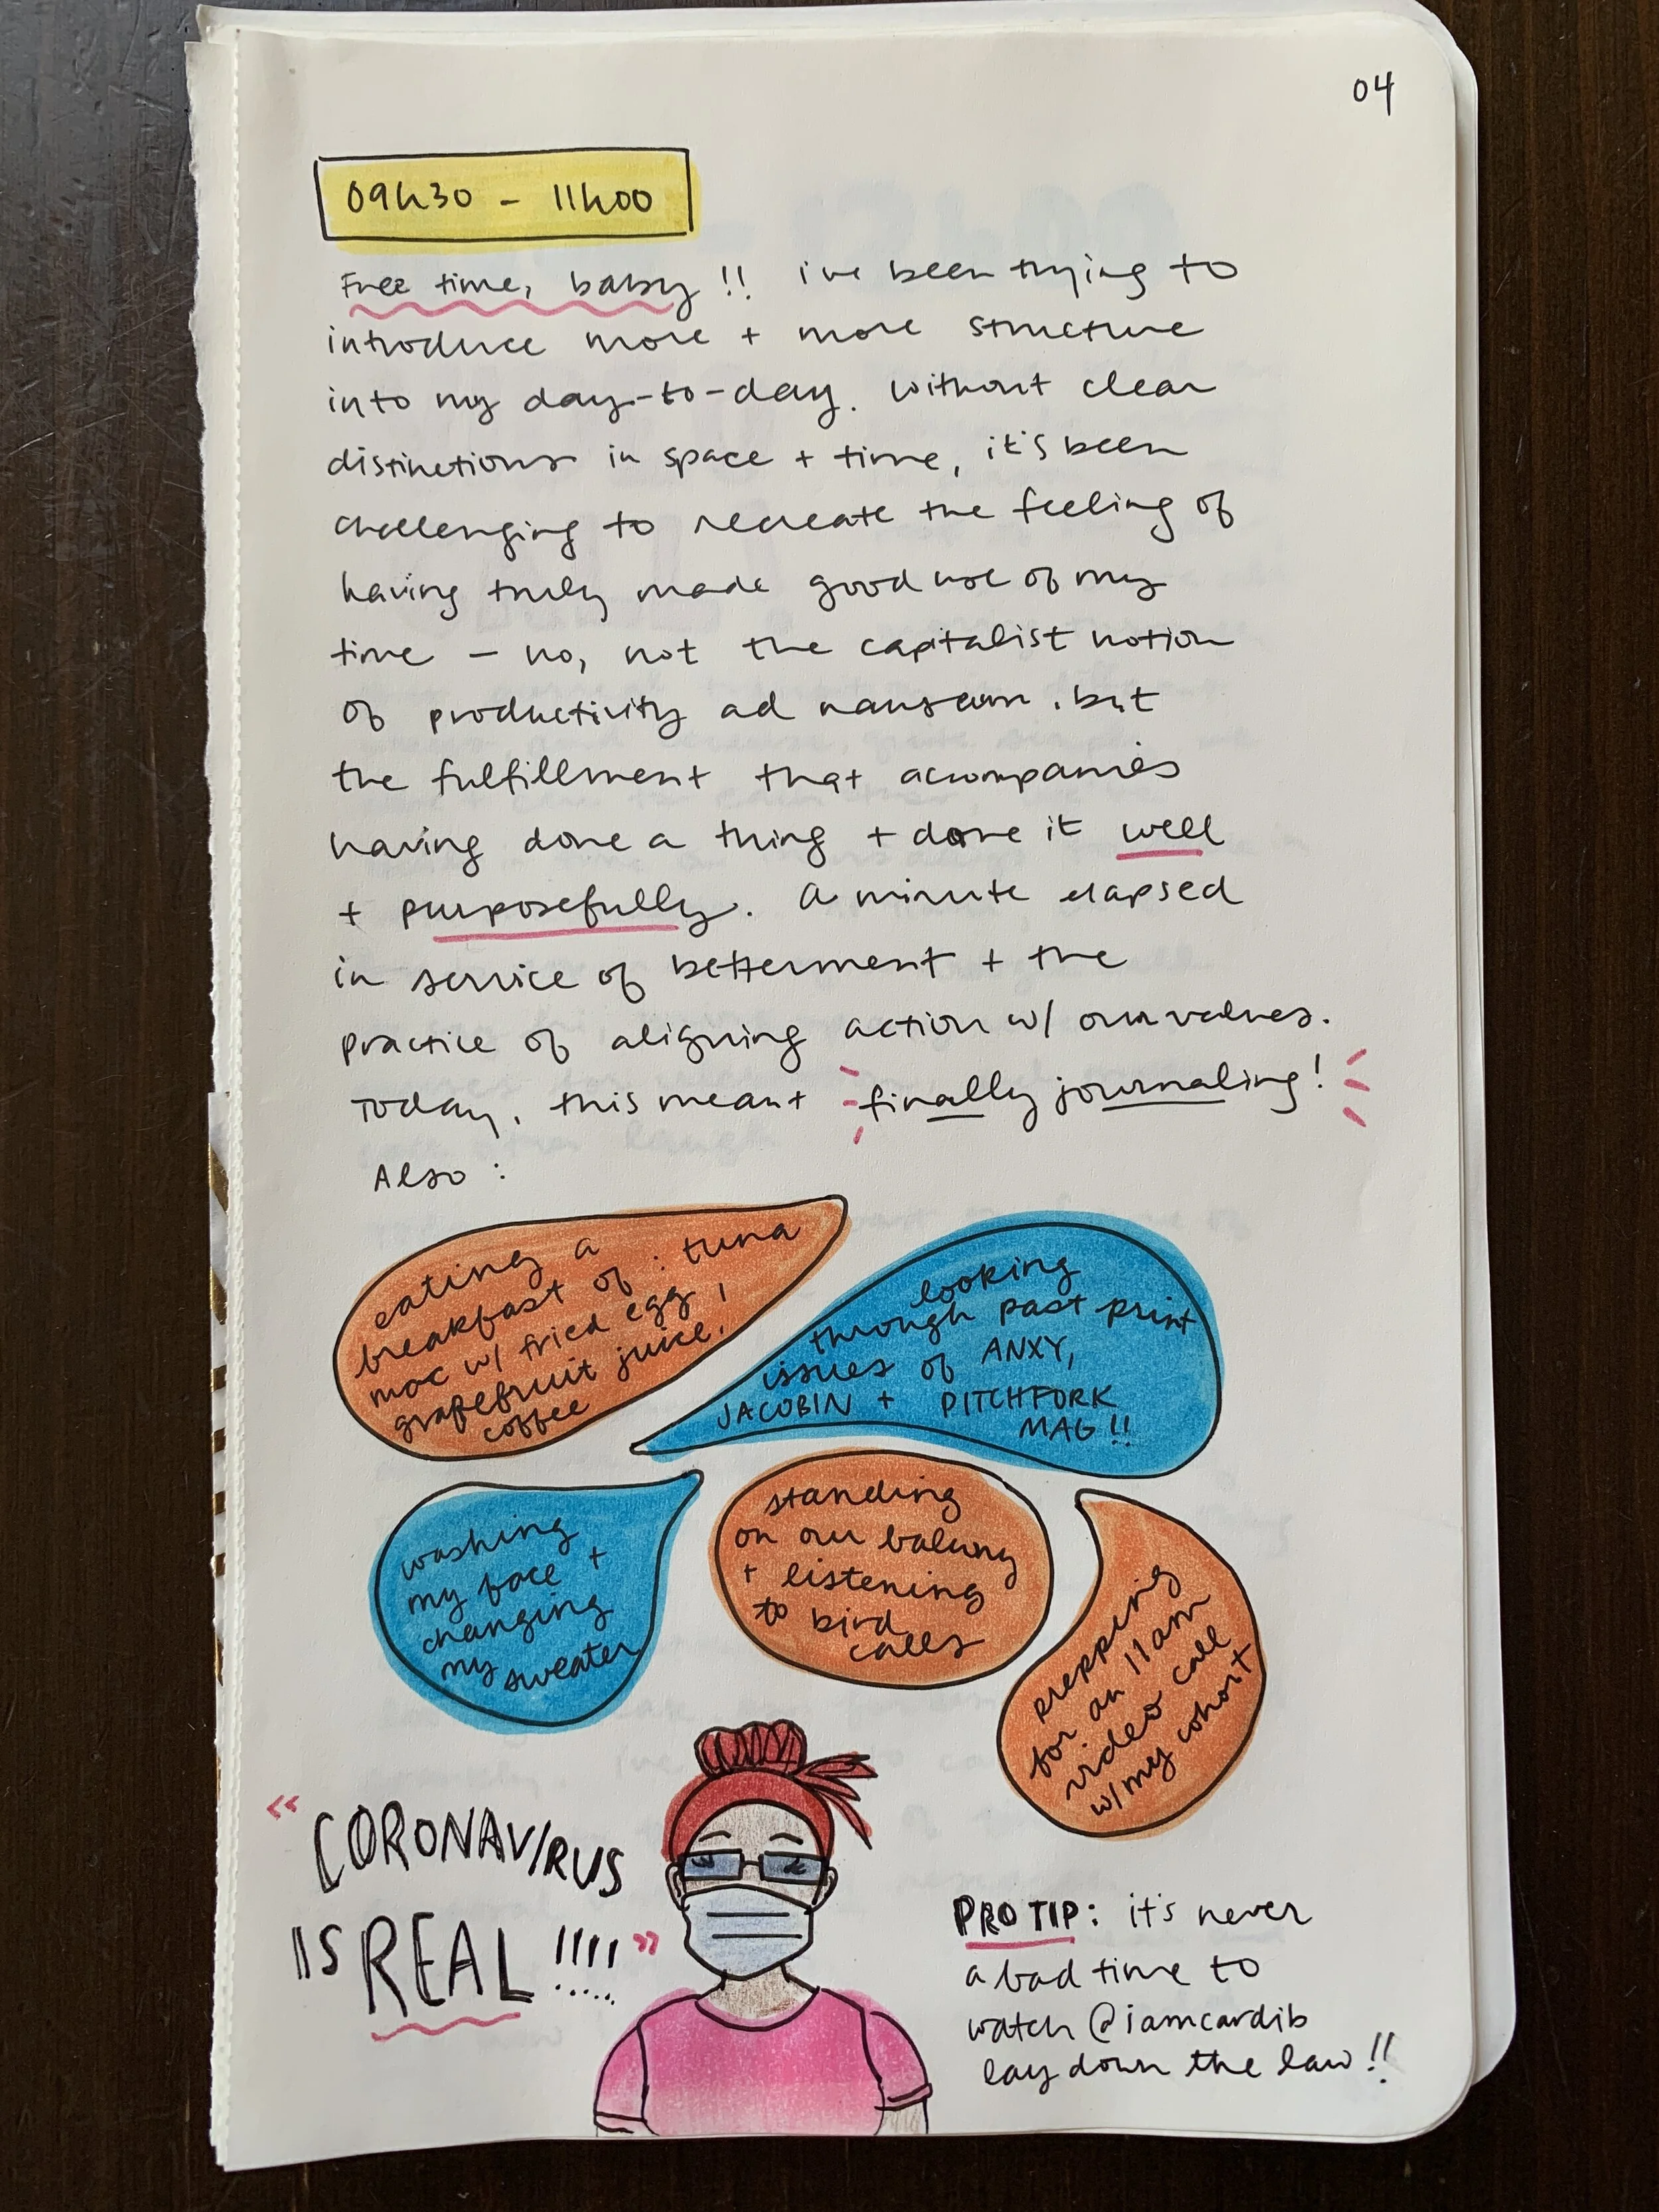 04
09h30 - 11h00
Free time, baby!! i've been trying to
introduce more + more structure
into my day-to-day. without clear
distinctions in space + time, it's been
challenging to recreate the feeling of
having truly made good use of my
time — no, not the capitalist notion
of productivity ad nauseam, but
the fulfillment that accompanies
having done a thing + done it well
+ purposefully. A minute elapsed
in service of betterment + the
practice of aligning action w/ our values.
Today, this meant finally journaling!
Also:
eating a
breakfast of: tuna
mac w/ fried egg,
grapefruit juice,
coffee
looking
through past print
issues of ANXY,
JACOBIN + PITCHFORK
MAG!!
washing
my face +
changing
my sweater
standing
on our balcony
+ listening
to bird
calls
prepping
for an 11am
video call
w/ my cohort
"CORONAVIRUS
IS REAL!!!!!"
PRO TIP: it's never
a bad time to
watch @iamcardib
lay down the law!!